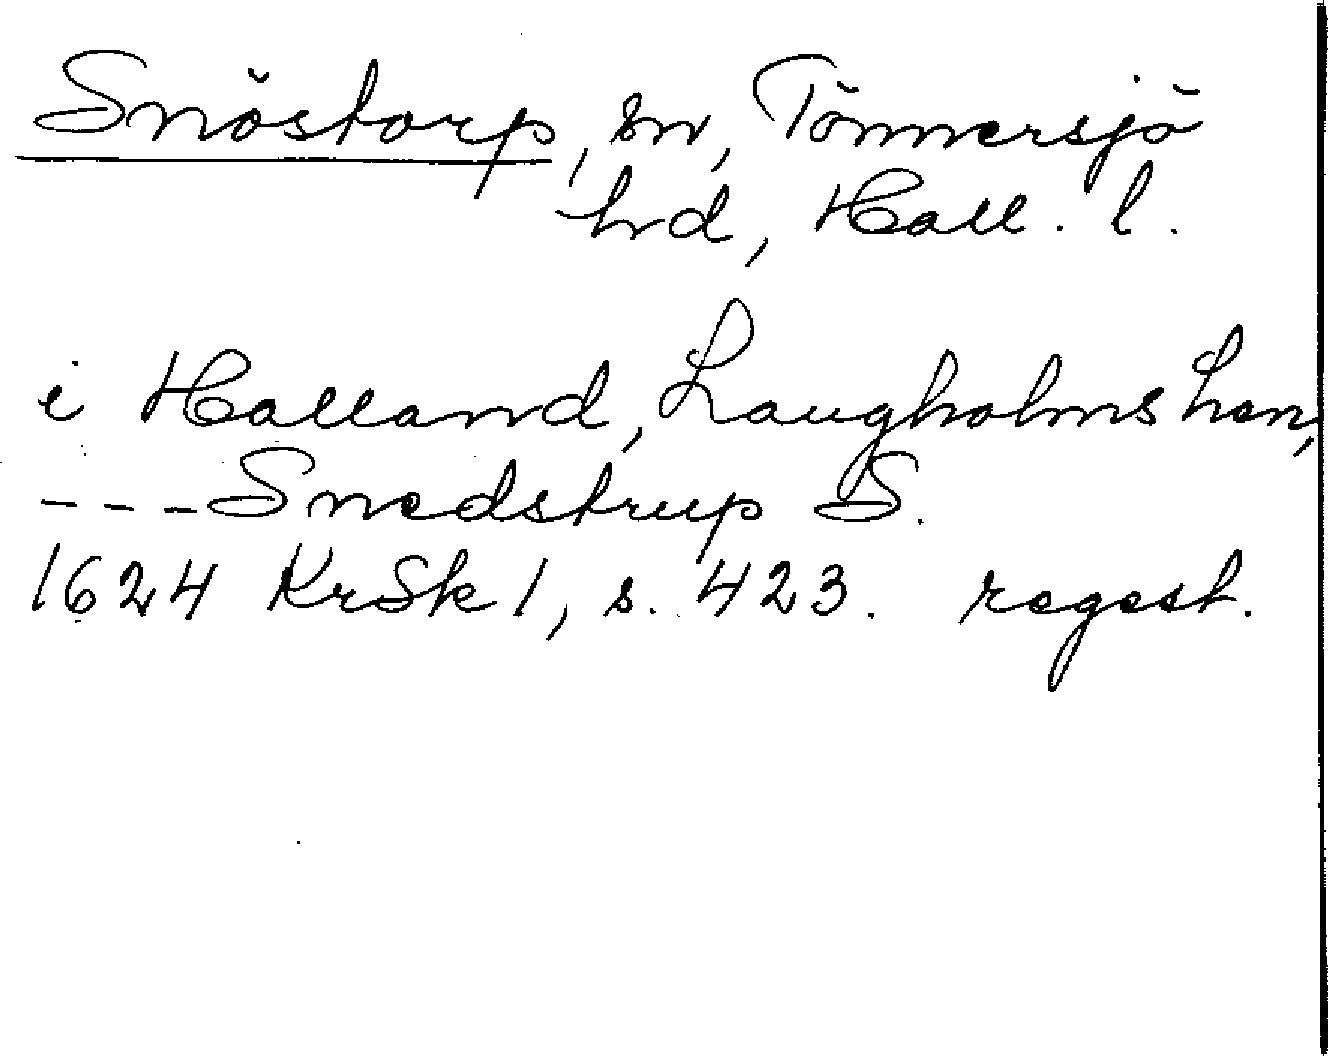 Snöstorp, sn, Tönnersjö
hd, Hall. l.
i Halland, Laugholms Len,
---Snedstrup S.
1624 KrSk 1, s. 423. regest.